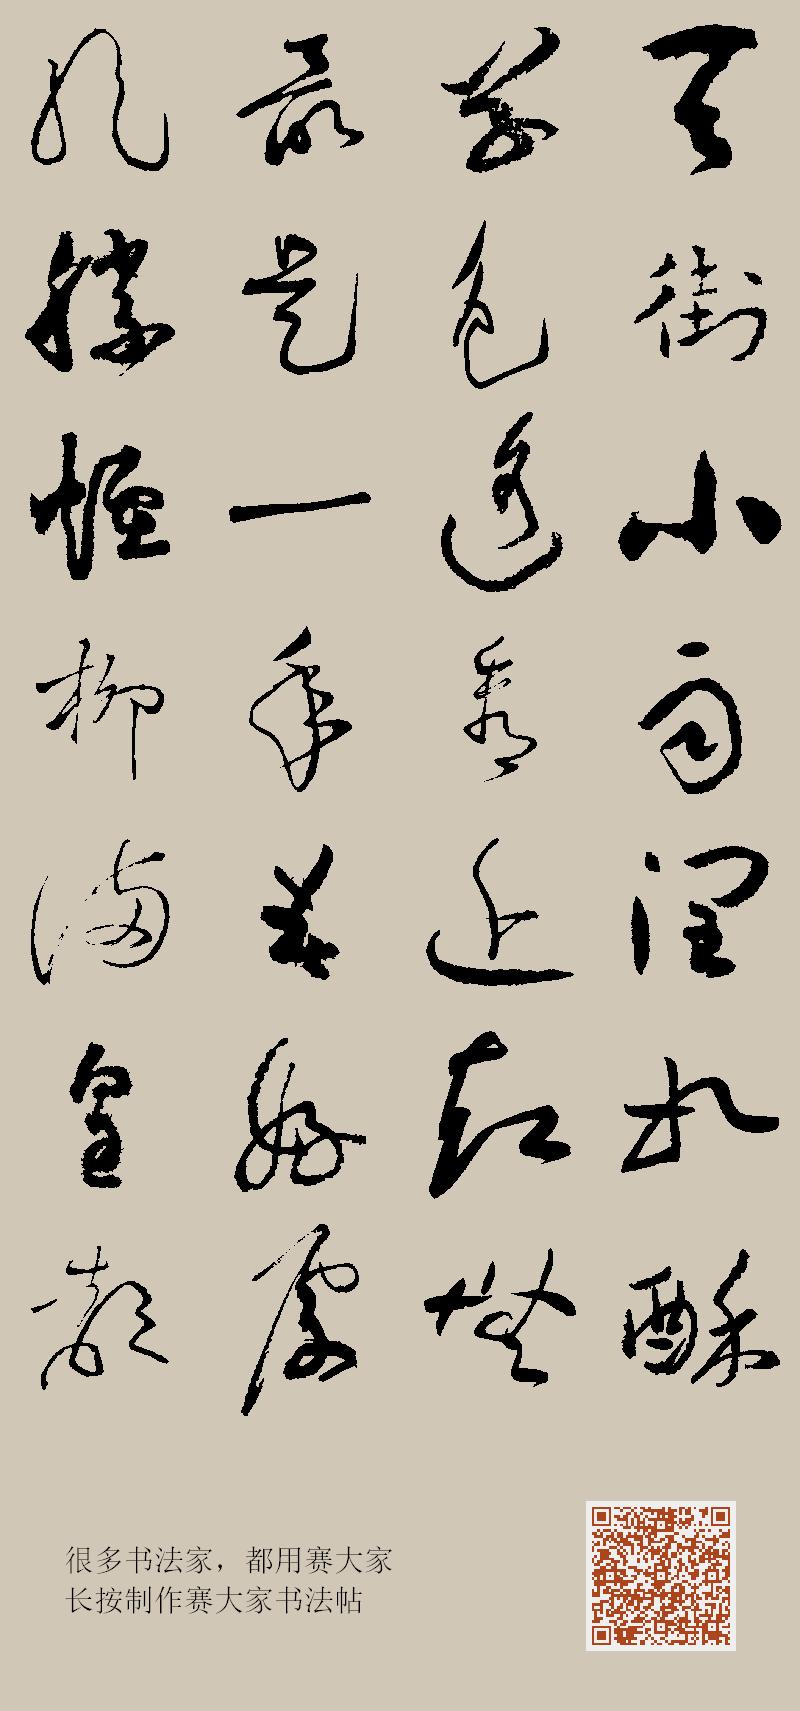 天街小雨潤如酥
草色遙看近却無
最是一年春好處
絕勝煙柳滿皇都
很多书法家，都用赛大家
长按制作赛大家书法帖